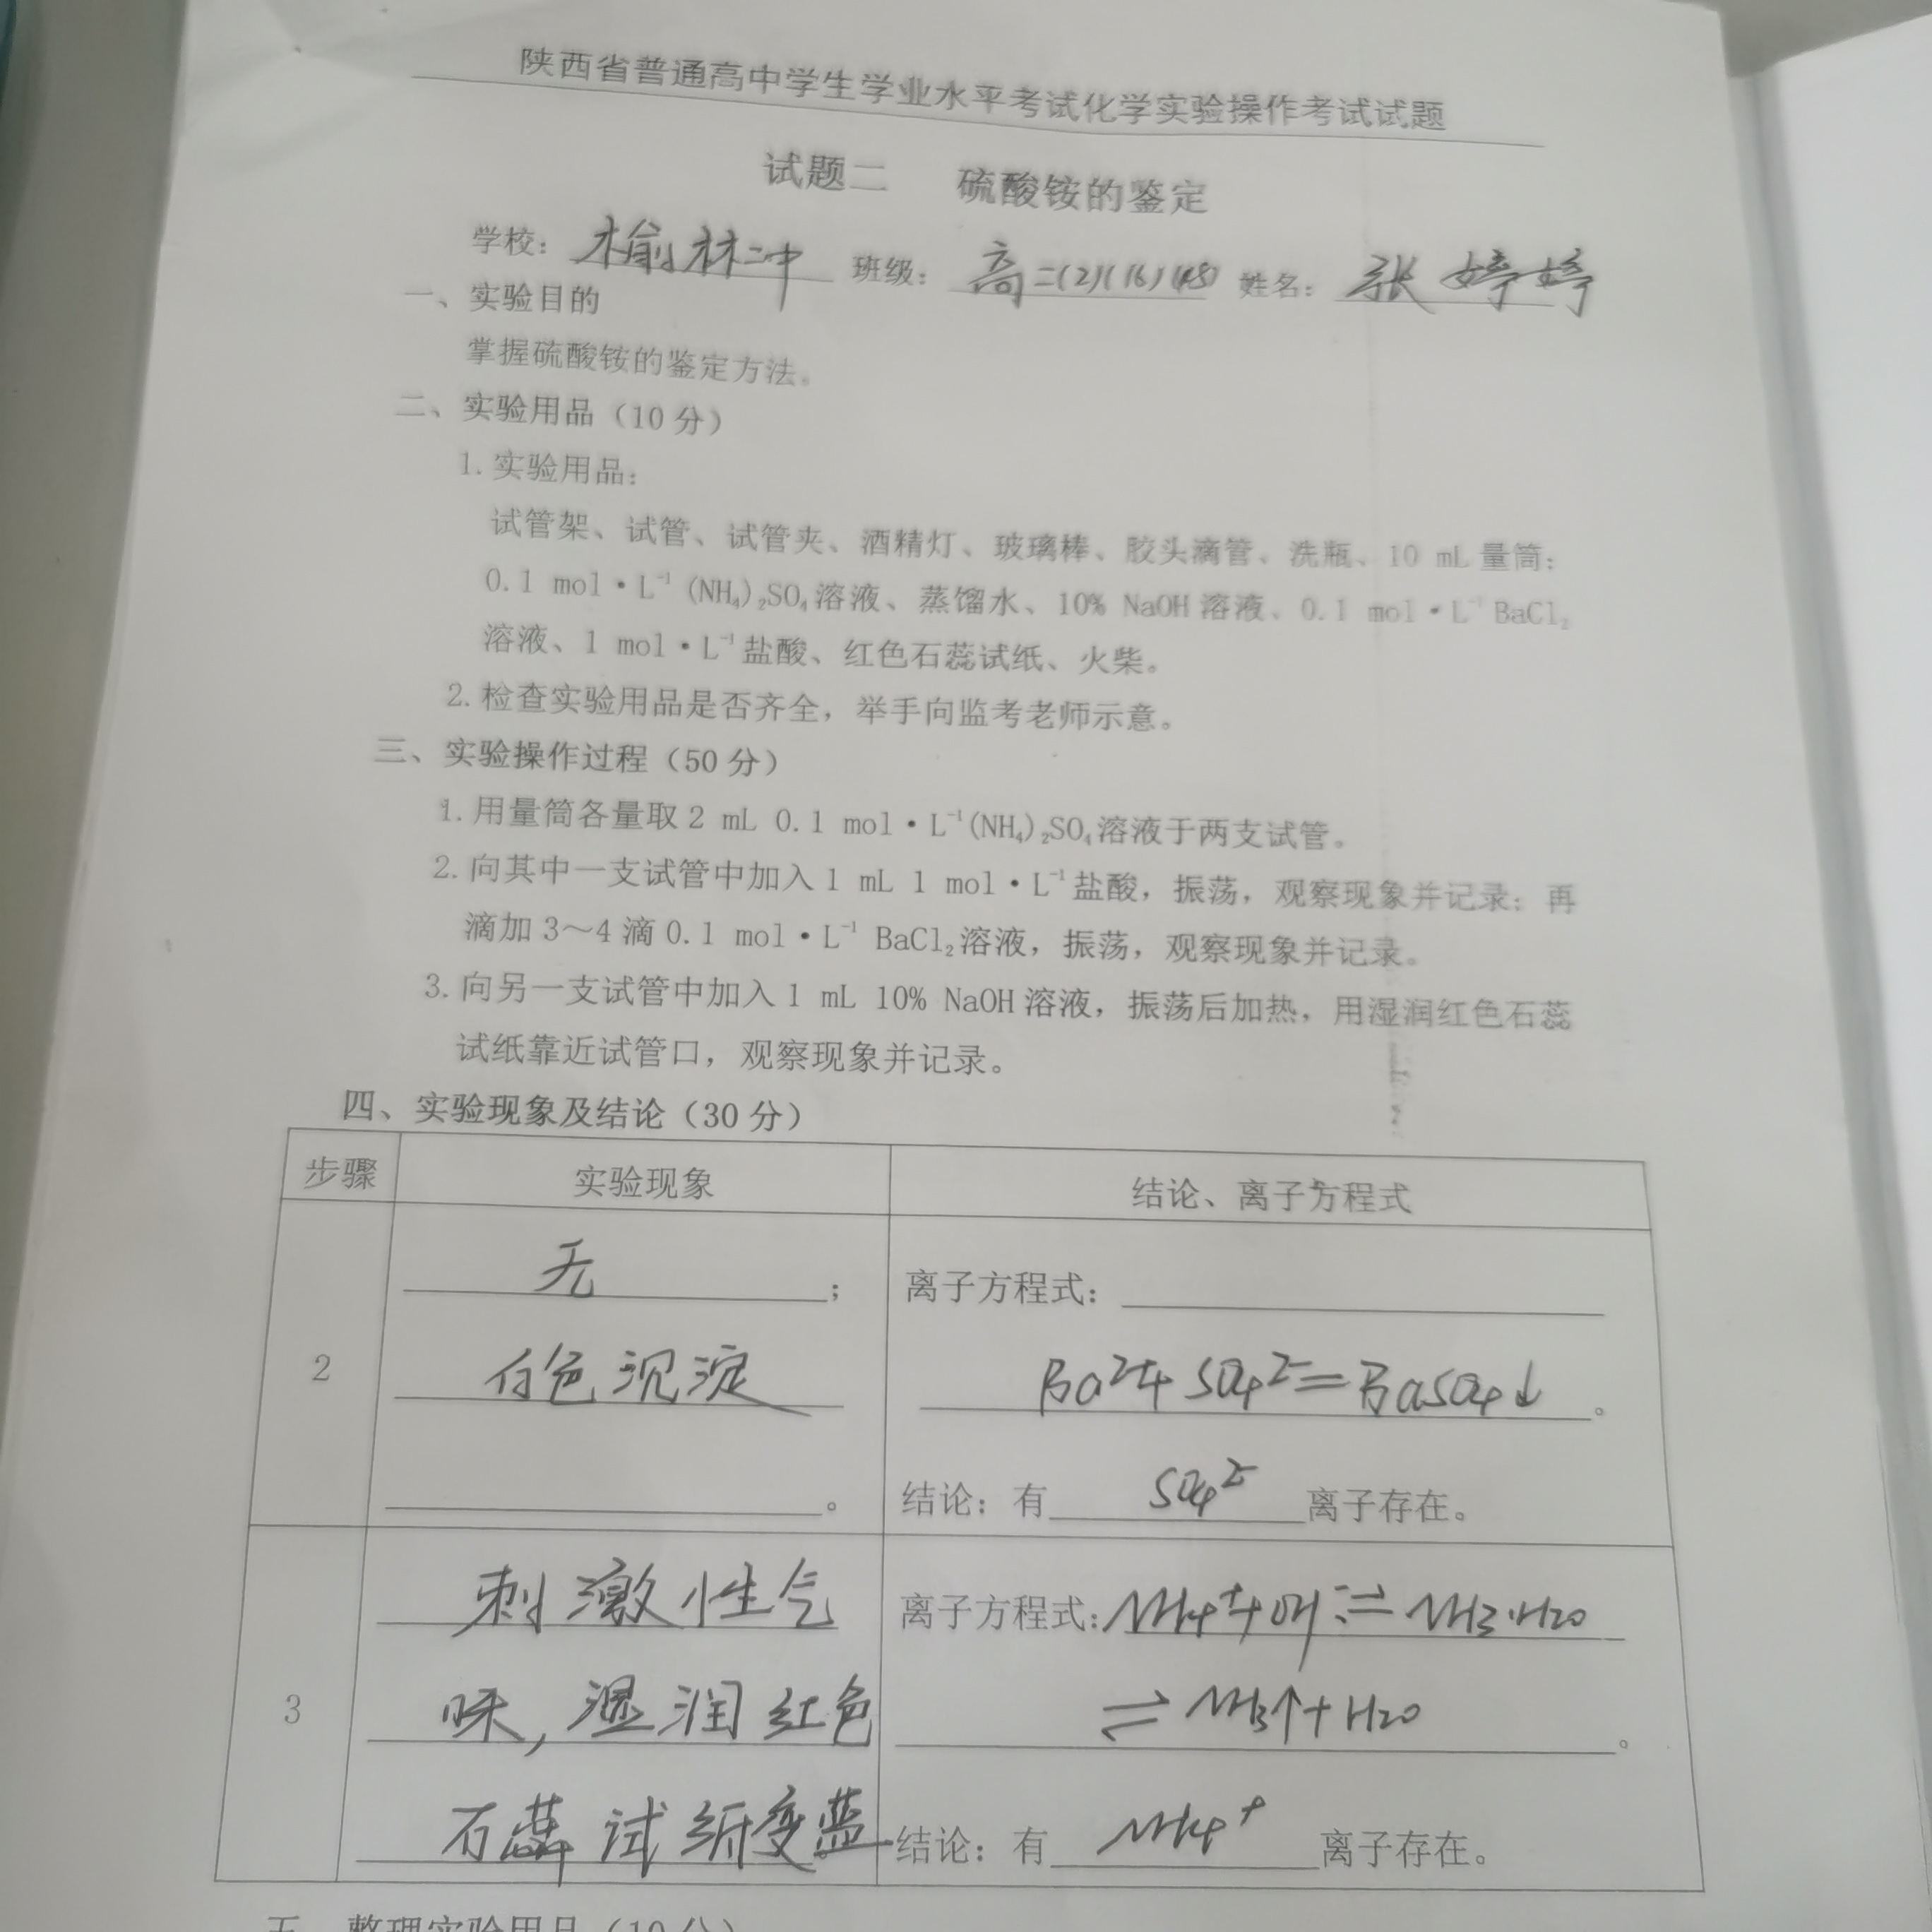 陕西省普通高中学生学业水平考试化学实验操作考试试题
试题二 硫酸铵的鉴定
学校：榆林二中 班级：高二(2)(16)(48) 姓名：张婷婷
一、实验目的
掌握硫酸铵的鉴定方法。
二、实验用品（10 分）
1. 实验用品：
试管架、试管、试管夹、酒精灯、玻璃棒、胶头滴管、洗瓶、10 mL 量筒；
0.1 mol·L⁻¹ (NH₄)₂SO₄ 溶液、蒸馏水、10% NaOH 溶液、0.1 mol·L⁻¹ BaCl₂
溶液、1 mol·L⁻¹ 盐酸、红色石蕊试纸、火柴。
2. 检查实验用品是否齐全，举手向监考老师示意。
三、实验操作过程（50 分）
1. 用量筒各量取 2 mL 0.1 mol·L⁻¹ (NH₄)₂SO₄ 溶液于两支试管。
2. 向其中一支试管中加入 1 mL 1 mol·L⁻¹ 盐酸，振荡，观察现象并记录；再
滴加 3～4 滴 0.1 mol·L⁻¹ BaCl₂ 溶液，振荡，观察现象并记录。
3. 向另一支试管中加入 1 mL 10% NaOH 溶液，振荡后加热，用湿润红色石蕊
试纸靠近试管口，观察现象并记录。
四、实验现象及结论（30 分）
步骤 实验现象 结论、离子方程式
无； 离子方程式：
2 白色沉淀 Ba²⁺+SO₄²⁻=BaSO₄↓。
。 结论：有 SO₄²⁻ 离子存在。
刺激性气 离子方程式：NH₄⁺+OH⁻⇌NH₃·H₂O
3 味，湿润红色 ⇌NH₃↑+H₂O。
石蕊试纸变蓝。 结论：有 NH₄⁺ 离子存在。
五、整理实验用品（10 分）